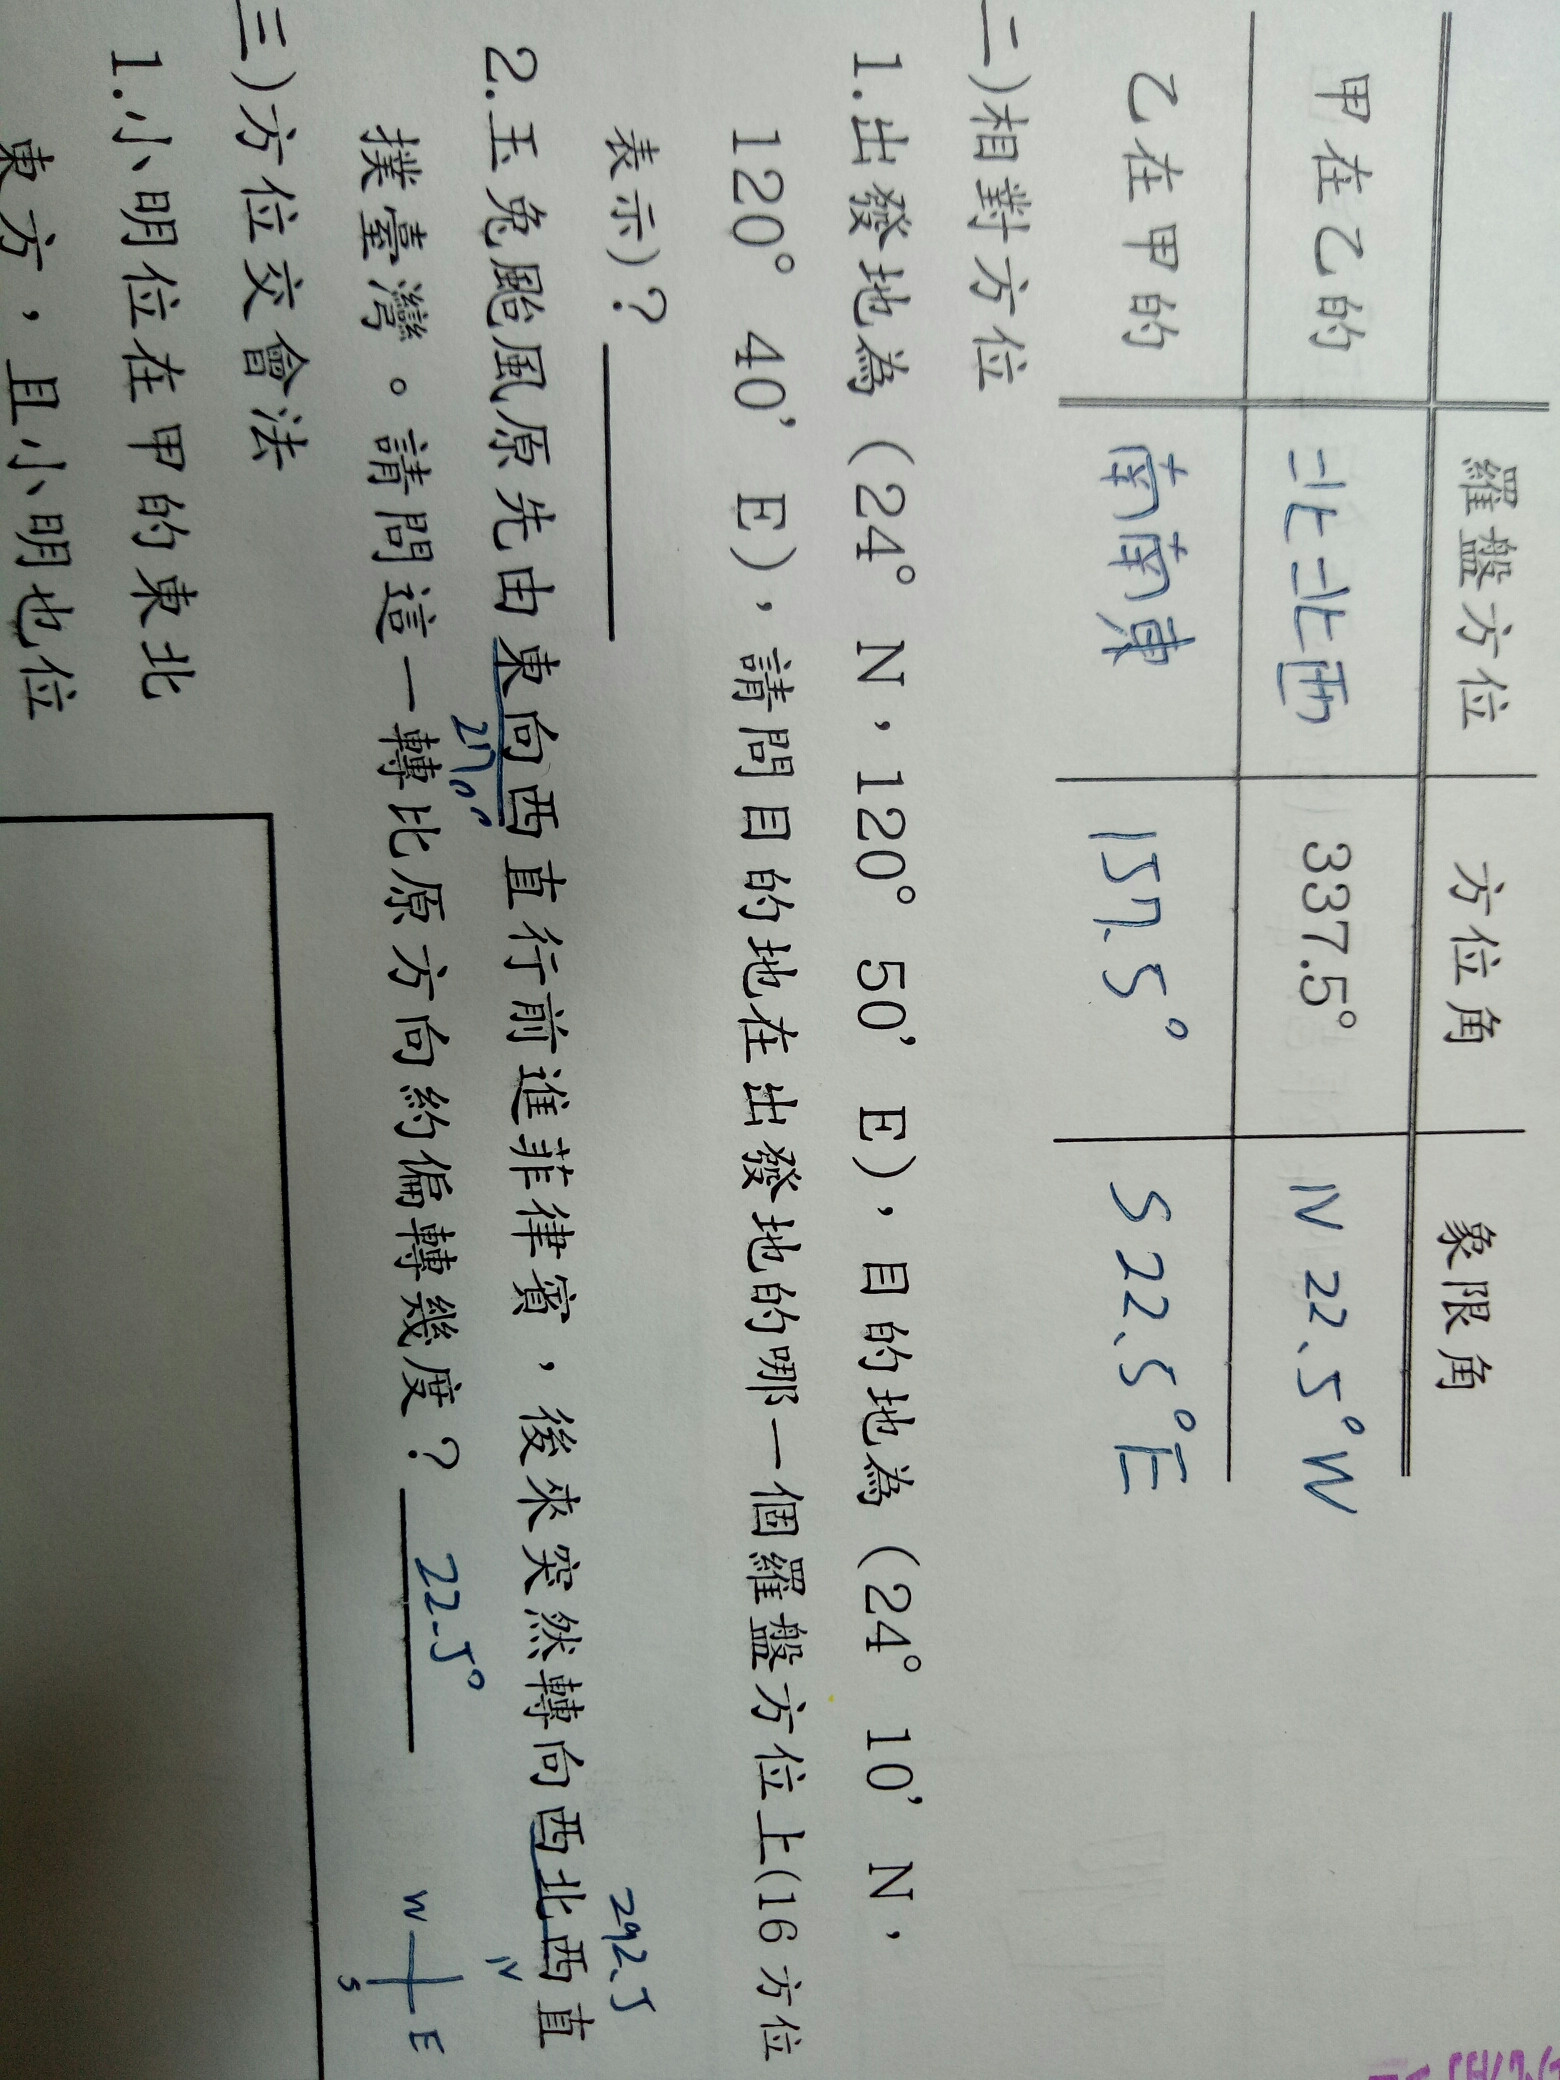 羅盤方位 方位角 象限角
甲在乙的 北北西 337.5° N 22.5° W
乙在甲的 南南東 157.5° S 22.5° E
二)相對方位
1.出發地為（24° N，120° 50’ E），目的地為（24° 10’ N，
120° 40’ E），請問目的地在出發地的哪一個羅盤方位上(16方位
表示)？
292.5
2.玉兔颱風原先由東向西直行前進菲律賓，後來突然轉向西北西直
270° N
撲臺灣。請問這一轉比原方向約偏轉幾度？ 22.5° W E
S
三)方位交會法
1.小明位在甲的東北
東方，且小明也位